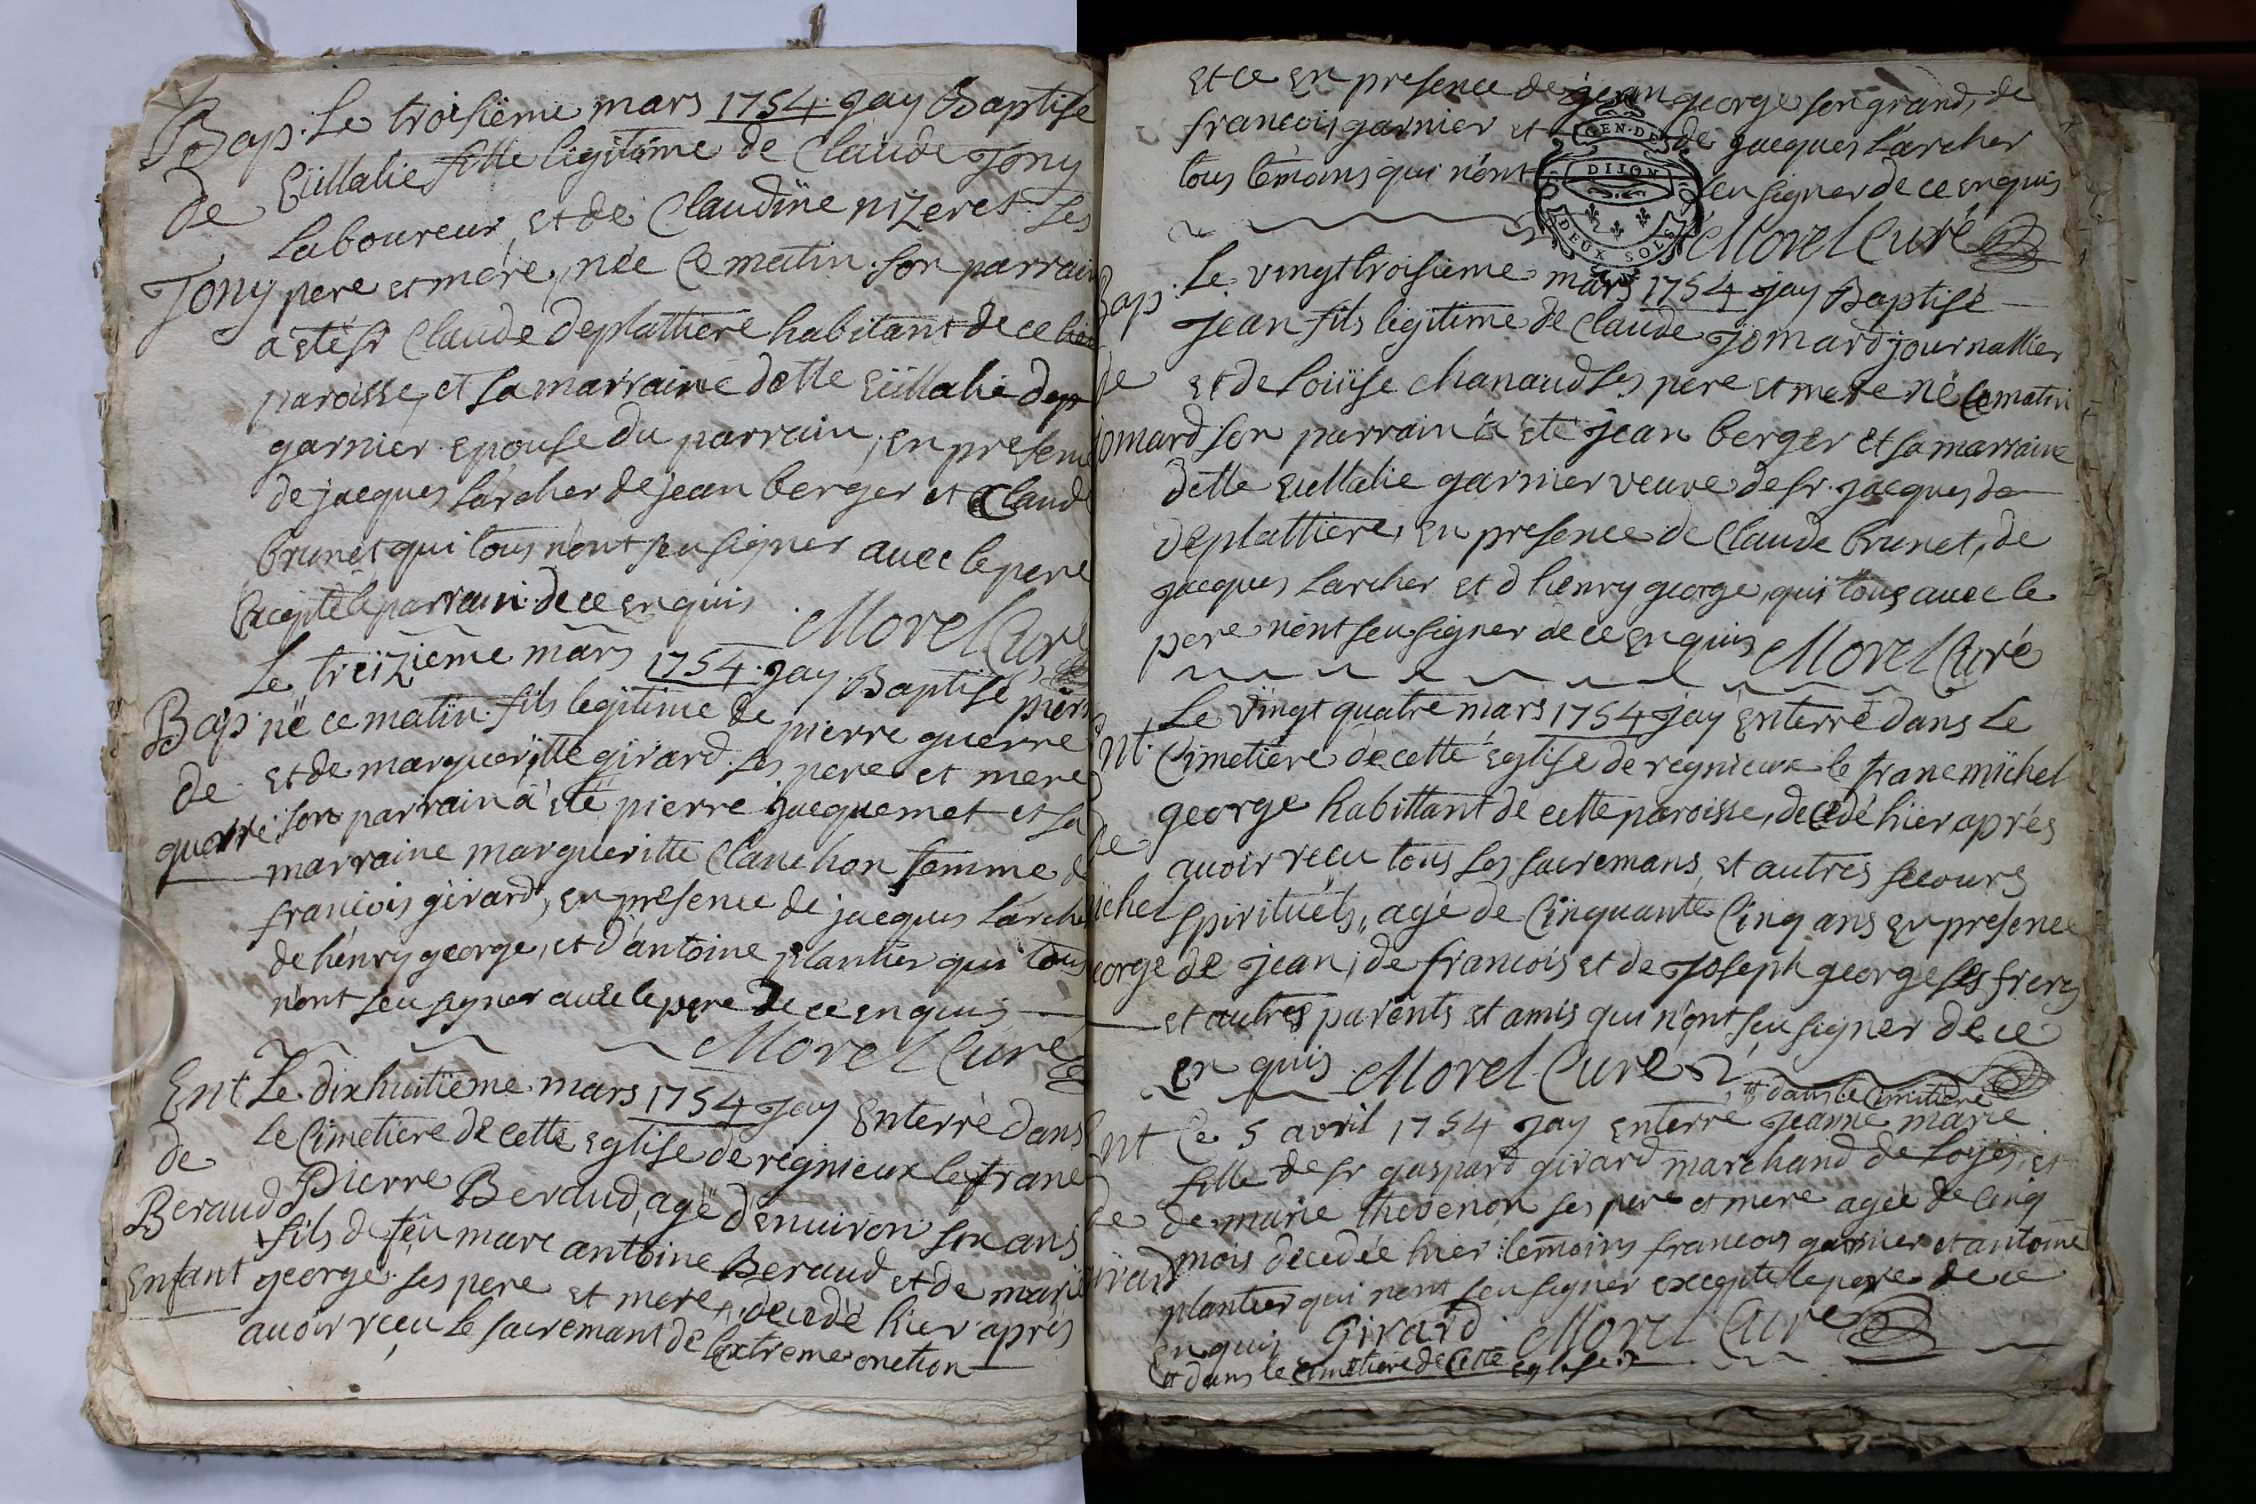 Bap. Le troisiëme mars 1754. jay Baptise
de Eüllalie fille legitime de Claude Jony
laboureur, et de Claudïne nizeret ses
Jony pere et mere, née ce matin. son parrain
a été sr Claude deplattiere habitant de ce
paroisse, et sa marraine delle Eüllalie
garnier epouse du parrain, en presence
de jacques larcher de jean berger et Claude
brunet qui tous n'ont seu signer avec le pere
Excepte le parrain. de ce enquis Morel Curé
Le treizieme mars 1754. jay Baptisé pierre
Bap. né ce matin. fils legitime de pierre guerre
de et de margueritte girard. ses pere et mere
guerre son parrain a été pierre jacquemet et sa
marraine margueritte Clauchon femme de
francois girard, en presence de jacques Larcher
de henry george, et d'antoine plantier qui tous
n'ont seu signer avec le pere de ce enquis
Morel Curé
Ent Le dixhuitiëme mars 1754 jay Enterré dans
le Cimetiere de cette Eglise de regnieux le franc
de Pierre Beraud, agé d'environ six ans
Beraud fils de feu marc antoine Beraud et de marie
Enfant george. ses pere et mere, decedé hier après
avoir reçu le sacremant de lextreme onction
et ce en presence de jean george son grand, de
francois garnier et de jacques Larcher
tous temoins qui n'ont seu signer de ce enquis
GEN. DE
DIJON
DEUX SOLS
Morel Curé
Bap. Le vingttroisieme mars 1754 jay Baptisé
Jean fils legitime de Claude Jomard journallier
de et de Loüise chanaud ses pere et mere né ce matin
jomard son parrain a été jean berger et sa marraine
delle Eullalie garnier veuve de sr. jacques de
deplattiere, en presence de Claude brunet, de
jacques Larcher et d henry george, qui tous avec le
pere n'ont seu signer de ce enquis Morel Curé
Le vingt quatre mars 1754 jay Enterré dans le
Ent. Cimetiere de cette Eglise de regnieux le franc michel
george habittant de cette paroisse, decedé hier aprés
de avoir reçu tous les sacremans, et autres secours
michel spirituels, agé de Cinquante Cinq ans en presence
george de jean, de francois et de Joseph george ses freres
et autres parents et amis qui n'ont seu signer de ce
en quis Morel Curé
# dans le Cimitiere
Ent Ce 5 avril 1754 jay enterré jeanne marie
fille de sr gaspard girard marchand de Loyes et
de de marie thevenon ses pere et mere agée de cinq
girard mois decedée hier temoins francois garnier et antoine
plantier qui nont seu signer excepte le pere de ce
enquis Girard Morel Curé
# dans le cimetiere de cette eglise